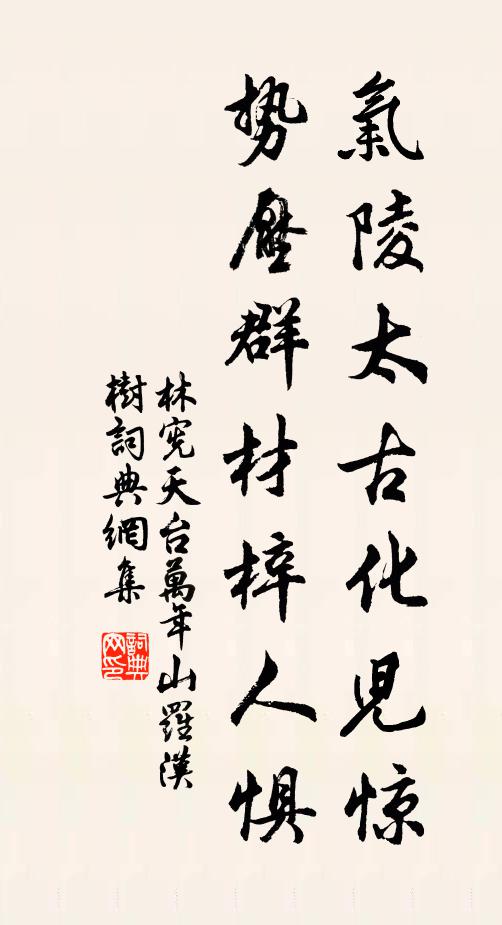 氣陵太古化児惊
势壓群材梓人惧
林宪天台萬年山羅漢
樹詞典網集
詞典
网印